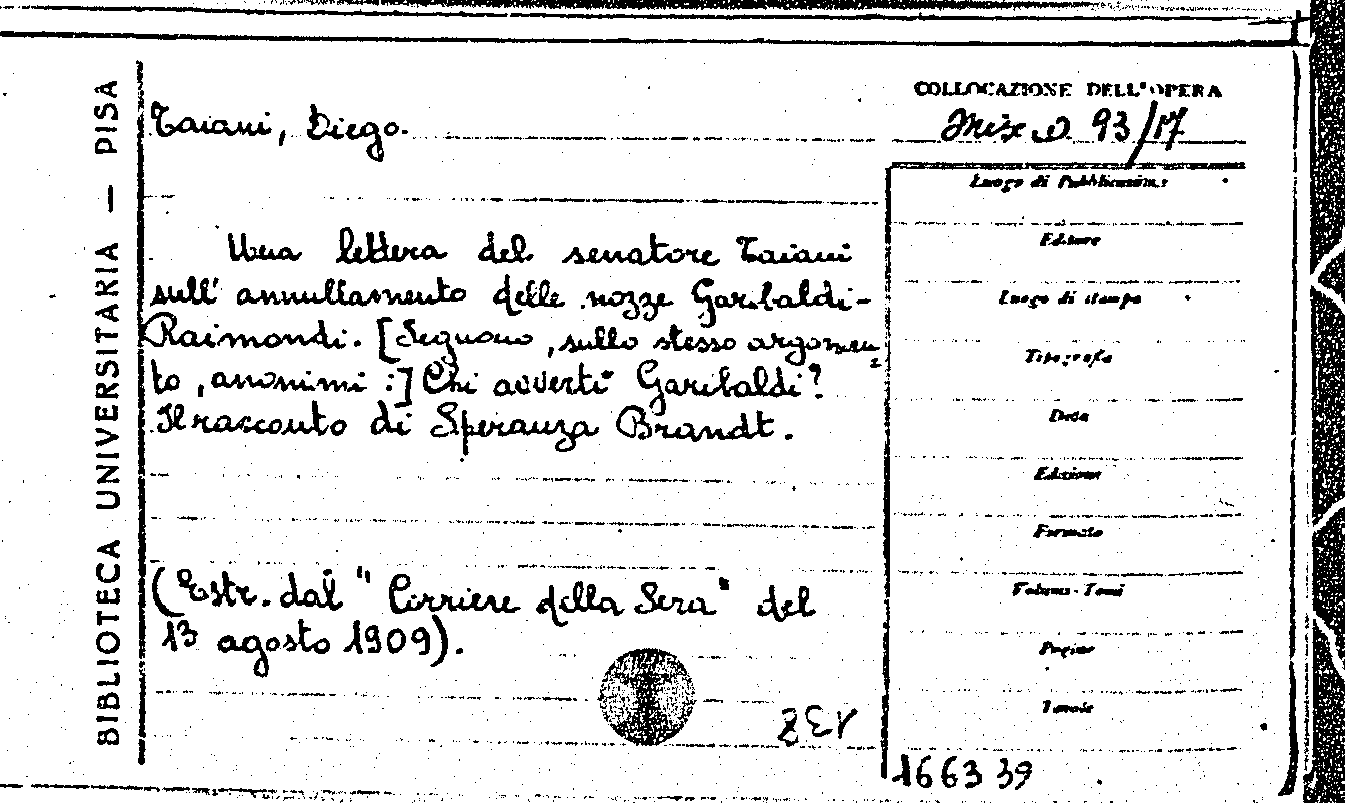 BIBLIOTECA UNIVERSITARIA — PISA
Taiani, Diego.
Una lettera del senatore Taiani
sull' annullamento delle nozze Garibaldi-
Raimondi. [Seguono, sullo stesso argomen-
to, anonimi:] Chi avvertì Garibaldi?
Il racconto di Speranza Brandt.
(Estr. dal "Corriere della Sera" del
13 agosto 1909).
COLLOCAZIONE DELL'OPERA
Misc. 93/17
Luogo di Pubblicazione
Editore
Luogo di stampa
Tipografia
Data
Edizione
Formato
Volumi - Tomi
Pagine
Tavole
166339